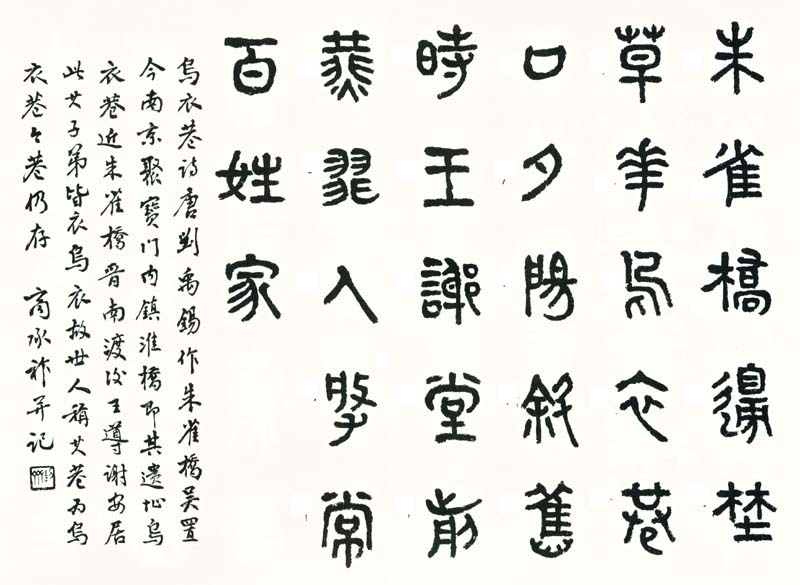 朱雀橋邊埜
草華烏衣巷
口夕陽斜舊
時王謝堂前
燕飛入尋常
百姓家
烏衣巷詩唐劉禹錫作朱雀橋吳置
今南京聚寶門內鎮淮橋即其遺址烏
衣巷近朱雀橋晉南渡後王導謝安居
此其子弟皆衣烏衣故世人稱其巷為烏
衣巷今巷仍存 商承祚并記